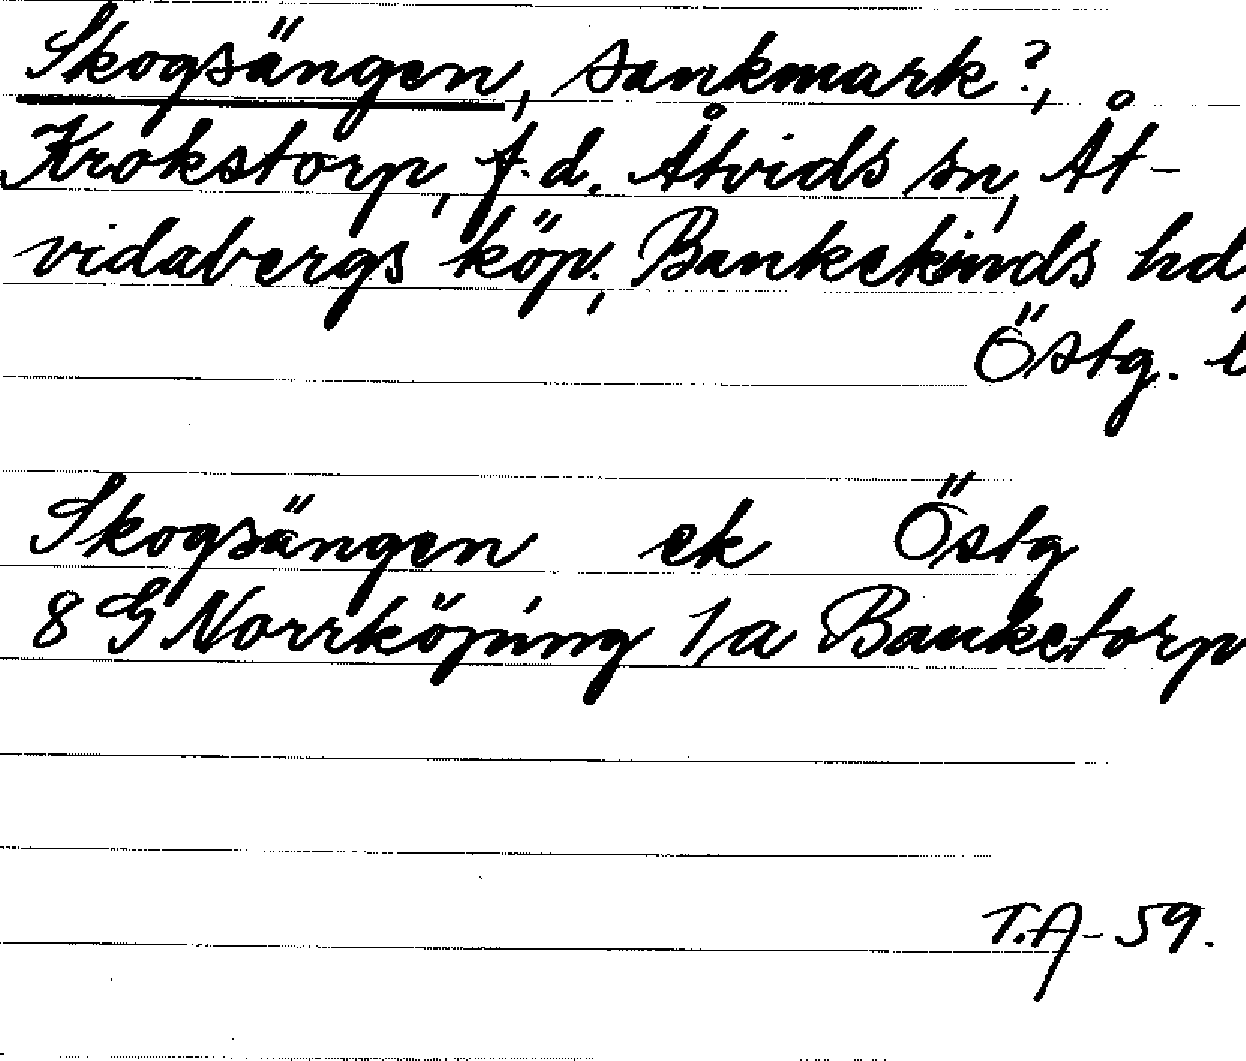 Skogsängen, sankmark?,
Krokstorp, f.d. Åtvids sn, Åt-
vidabergs köp., Bankekinds hd,
Östg. l
Skogsängen ek Östg
8 G Norrköping 1/a Banketorp
T.A-59.